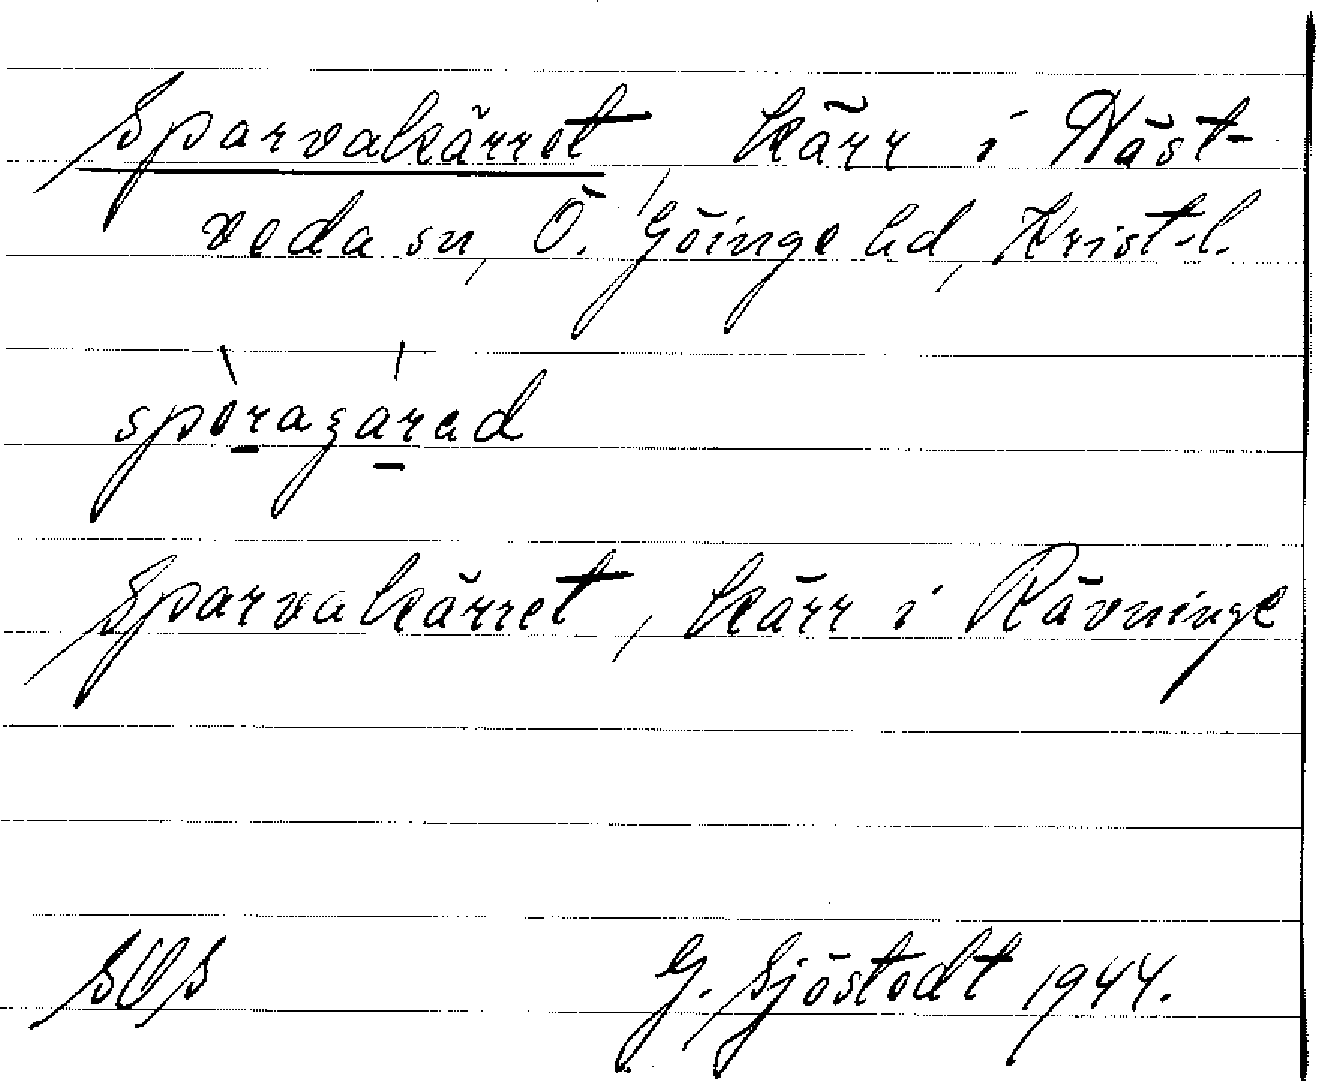 Sparvakärret kärr i Näst-
veda sn, Ö. Göinge hd, Krist-l.
Sparvakärret, kärr i Rävninge
SOS G. Sjöstedt 1944.